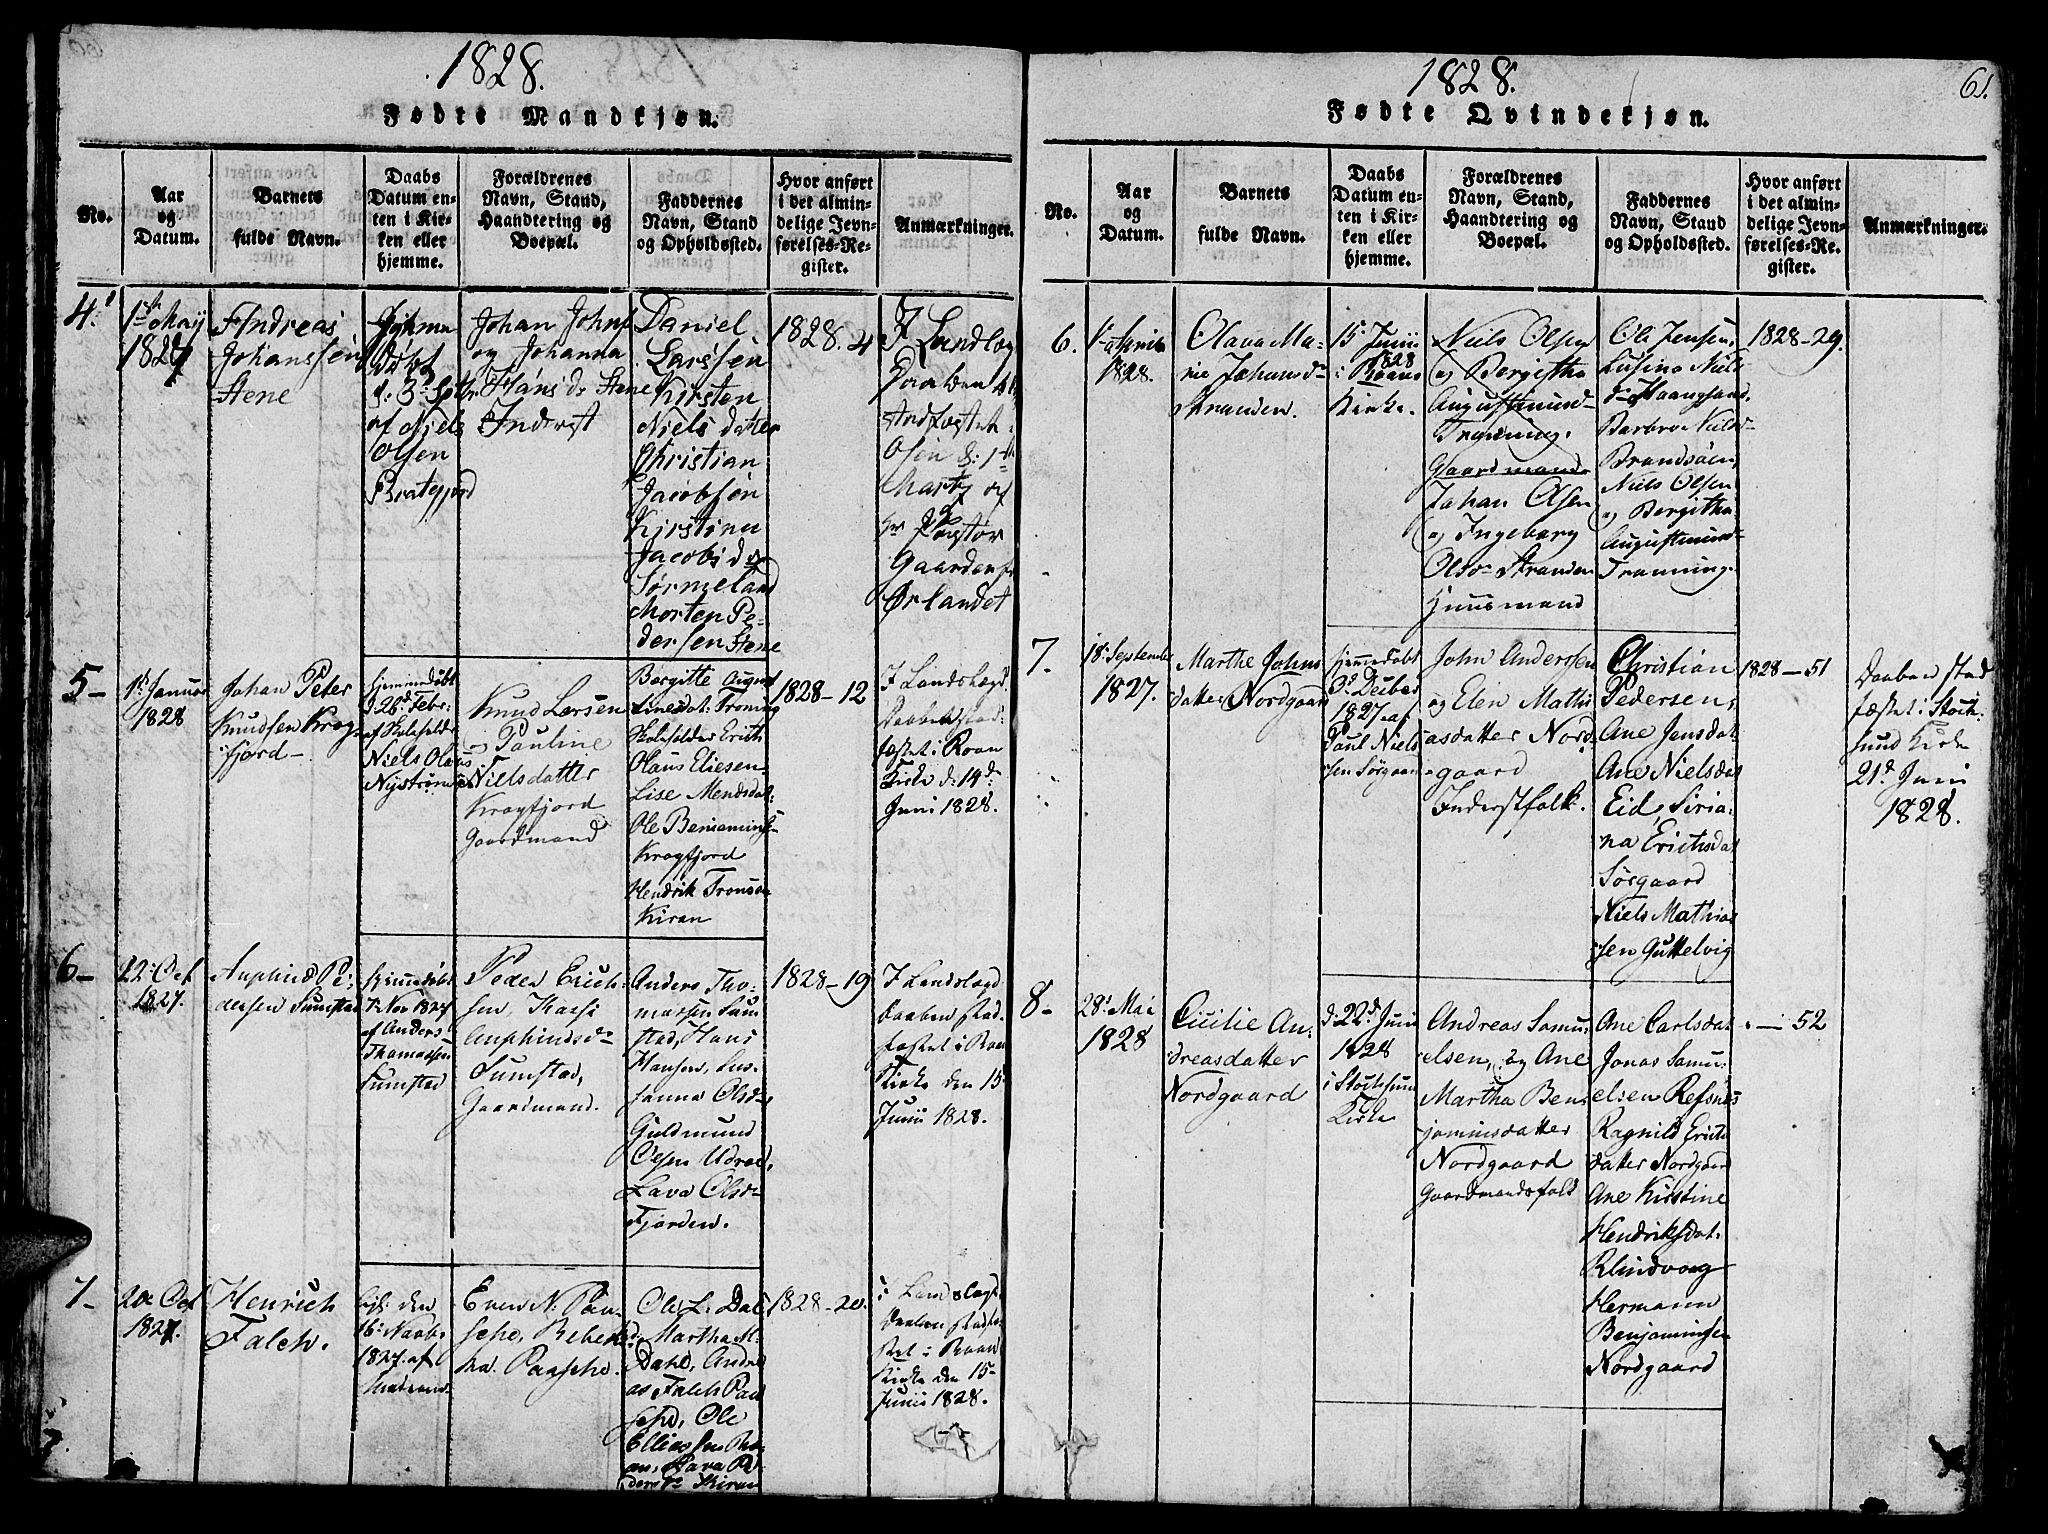 1828.
Fødte Mandkjøn.
No.
Aar
og
Datum.
Barnets
fulde Navn.
Daabs
Datum en-
ten i Kir-
ken eller
hjemme.
Forældrenes
Navn, Stand,
Haandtering og
Boepæl.
Faddernes
Navn, Stand
og Opholdssted.
Hvor anført
i det almin-
delige Jevn-
førelses-Re-
gister.
Anmærkninger.
4.
1st May
1827
Andreas
Johanssen
Stene
Hjemme
døbt
d: 3d Sptbr
af Niels
Olsen
Bratsfjord
Johan Johns
og Johanna
Hans dr Stene
Inderst
Daniel
Larssen
Kirsten
Niels datter
Christian
Jacobsen
Kirstina
Jacobs dr
Sørmeland
Morten Pe-
dersen Stene
1828. 4
I Landlæg
Daaben
stadfæstet
Osen d: 1
Martz af
Hr Pastor
Gaarder
Ørlandet
5-
1st Januar
1828
Johan Peter
Knudsen Krog-
fjord -
Hjemmedøbt
d 28d Febr:
af Skoleholder
Niels Olaus
Nystrømer
Knud Larsen
og Pauline
Nielsdatter
Krogfjord
Gaardmand
Bergitte August
Linesdat: Troning
Skoleholder Erich
Olaus Eliesen
Lise Mendsdat:
Ole Benjamins
Krogfjord
Hendrik Tronsen
Kiran
1828-12
I Landslægd.
Daabenstad-
fæstet i Roan
Kirke d: 14d
Juni 1828.
6-
22: Oct
1827.
Anphind Pe-
dersen Sumstad
Hjemmedøbt
7 Nov 1827
af Anders
Thomassen
Sumstad
Peder Erich-
sen, Kassi
Anphindsd-
Sumstad,
Gaardmand.
Anders Tho-
massen Sum
stad, Hans
Hansen, Su-
sanna Olsd-
Guldmund
Olsen Udroe,
Lava Olsd-
Fjorden.
1828-19
I Landslægd
daabenstad-
fæstet i Roan
Kirke den 15
Junii 1828.
7-
20 Oct
1827.
Henrich
Falch.
den
16 Novbr
1827. af
Even N: Paa-
sche, Rebek-
ka Paasche.
Ole L. Dal
Martha M.
Dahl, Andre
as Falch Paa
sche, Ole
Elliassen Ro-
an, Lava Pe
dersdr Kiran
1828-20.
i Landslægt
daaben stadfæ-
stet i Roan
Kirke den 15-
Junii 1828.
1828.
61.
Fødte Qvindekjøn.
No.
Aar
og
Datum.
Barnets
fulde Navn.
Daabs
Datum en-
ten i Kir-
ken eller
hjemme.
Forældrenes
Navn, Stand,
Haandtering og
Boepæl.
Faddernes
Navn, Stand
og Opholdssted.
Hvor anført
i det almin-
delige Jevn-
førelses-Re-
gister.
Anmærkninger.
6.
April
1828.
Olava Ma-
rie Johansdr
Stranden.
15 Junii
1828
i Roans
Kirke.
Niels Olsen
og Bergitha
Augustinus-
Troning.
Gaardmand
Johan Olsen
og Ingeborg
Olsdr Stranden
Huusmand
Ole Jensen,
Lusina Niels
dr Haangstand,
Barbro Nielsdr
Brandsøen,
Niels Olsen
og Bergitha
Augustinus-
Tronning.
1828-29.
7.
18 September
1827.
Marthe Johns
datter Nordgaard
Hjemmedøbt
3d Decbr
1827 af
Paul Niels
sen Sørgaar
John Anderssen
og Elen Mathi
asdatter Nord-
gaard
Inderstfolk.
Christian
Pedersen,
Ane Jensdat
Ane Nielsdat
Eid, Siria-
na Erichsdat
Sørgaard
Niels Mathias
sen Guttelvig
1828-51
Daaben stad
fæstet i Stock-
sund Kirke
21d Juni
1828.
8-
28d Mai
1828
Cicilie An-
dreasdatter
Nordgaard
d: 22d Juni
1828
i Stocksund
Kirke
Andreas Samu-
elsen, og Ane
Martha Ben
jaminsdatter
Nordgaard
Gaardmandsfolk
Ane Carlsdat
Jonas Samu-
elsen Refsnes
Ragnild Erichs
datter Nordgaar
Ane Kirstine
Hendriksdat:
Rlindvaag
Hermann
Benjaminsen
Nordgaard
- 52